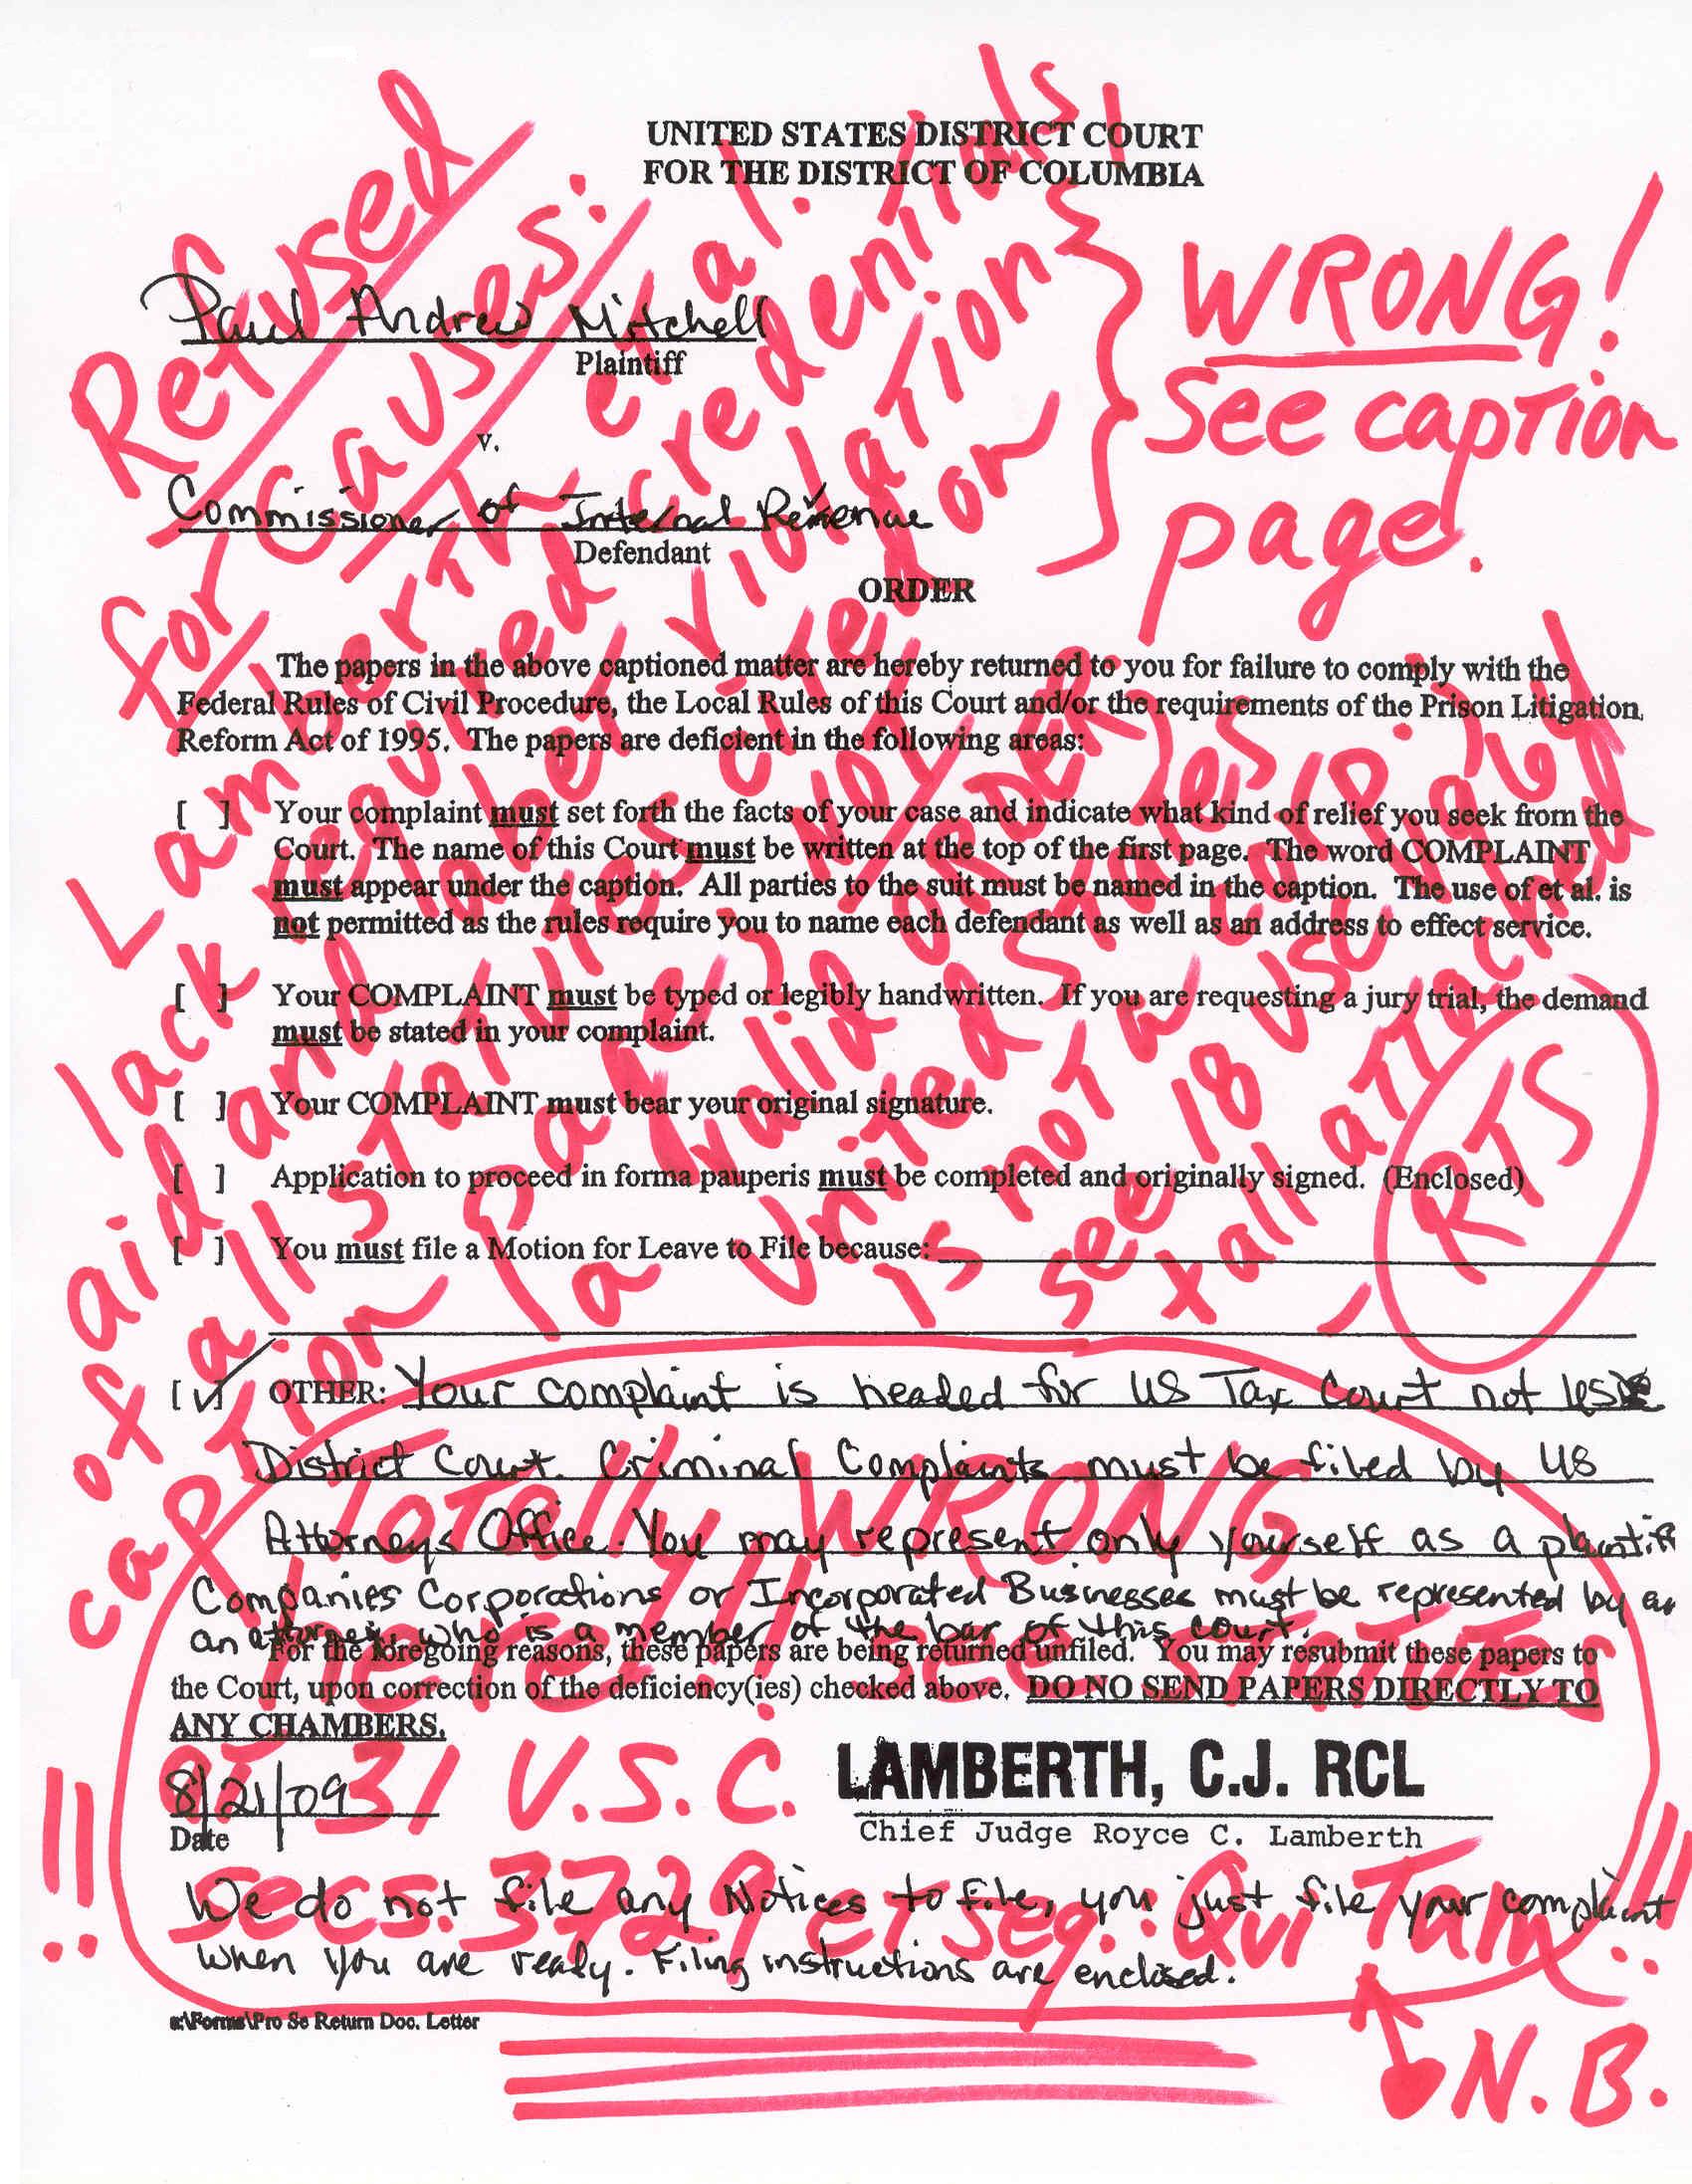 UNITED STATES DISTRICT COURT
FOR THE DISTRICT OF COLUMBIA
Paul Andrew Mitchell
Plaintiff
v.
Commissioner of Internal Revenue
Defendant
ORDER
The papers in the above captioned matter are hereby returned to you for failure to comply with the
Federal Rules of Civil Procedure, the Local Rules of this Court and/or the requirements of the Prison Litigation
Reform Act of 1995. The papers are deficient in the following areas:
[ ] Your complaint must set forth the facts of your case and indicate what kind of relief you seek from the
Court. The name of this Court must be written at the top of the first page. The word COMPLAINT
must appear under the caption. All parties to the suit must be named in the caption. The use of et al. is
not permitted as the rules require you to name each defendant as well as an address to effect service.
[ ] Your COMPLAINT must be typed or legibly handwritten. If you are requesting a jury trial, the demand
must be stated in your complaint.
[ ] Your COMPLAINT must bear your original signature.
[ ] Application to proceed in forma pauperis must be completed and originally signed. (Enclosed)
[ ] You must file a Motion for Leave to File because:
[✓] OTHER: Your complaint is headed for US Tax Court not US
District Court. Criminal Complaints must be filed by US
Attorneys Office. You may represent only yourself as a plaintiff
Companies Corporations or Incorporated Businesses must be represented by an
an attorney who is a member of the bar of this court.
For the foregoing reasons, these papers are being returned unfiled. You may resubmit these papers to
the Court, upon correction of the deficiency(ies) checked above. DO NO SEND PAPERS DIRECTLY TO
ANY CHAMBERS.
8/21/09
Date
LAMBERTH, C.J. RCL
Chief Judge Royce C. Lamberth
We do not file any Notices to file, you just file your complaint
when you are ready. Filing instructions are enclosed.
a:\Forms\Pro Se Return Doc. Letter
Refused
for Causes:
Lamberth et al.
lack required credentials,
aid and abet violation
of all STATUTES cited on
capTion Page; NOT
a valid ORDER;
United States
is not a Corp.;
see 18 USC 1961
all attached
RTS
WRONG!
See capTion
page.
ToTally WRONG
here!!! see STaTutes
aT 31 U.S.C.
secs. 3729 eT seq.: Qui Tam
!! !!
N.B.